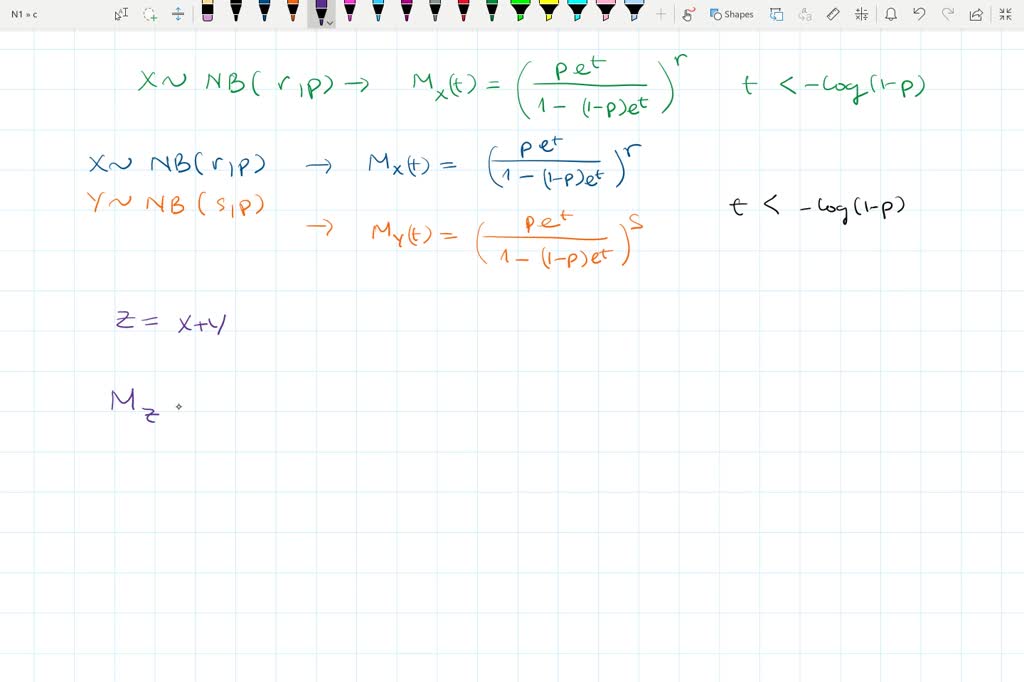 N1 » c
Shapes
X ~ NB( r, p) → Mx(t) = (pe^t / 1 - (1-p)e^t)^r t < -log(1-p)
X ~ NB(r, p) → Mx(t) = (pe^t / 1 - (1-p)e^t)^r
Y ~ NB (s, p)
t < -log(1-p)
→ MY(t) = (pe^t / 1 - (1-p)e^t)^s
Z = X+Y
Mz